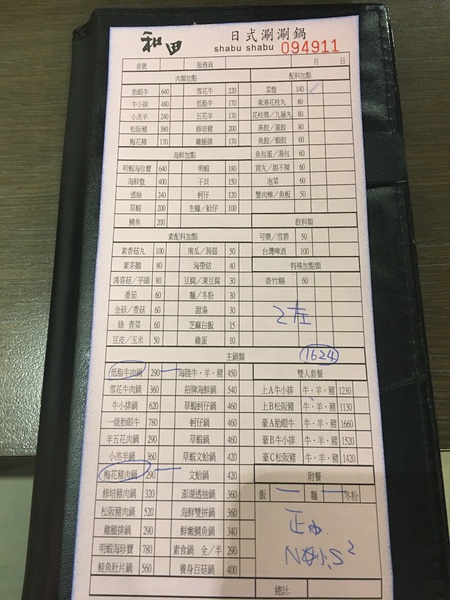 和田 日式涮涮鍋
shabu shabu 094911
桌號 服務員 月 日
肉類加點 配料加點
肋眼牛 640 雪花牛 220 菜盤 140
牛小排 480 低脂牛 170 東港花枝丸 80
小羔羊 240 五花羊 170 花枝漿/九層丸 80
松阪豬 380 修培豬 200 燕餃/蛋餃 60
梅花豬 170 雞腿排 170 魚餃/蝦餃 60
海鮮加點 魚包蛋/湯包 60
明蝦海珍寶 640 明蝦 180 貢丸/甜不辣 60
海鮮盤 400 干貝 150 泡菜 60
透抽 240 蚵仔 120 蟹肉棒/魚板 50
草蝦 200 生蠔/蛤仔 100
鯛魚 200 飲料類
素配料加點 可樂/雪碧 50
素香菇丸 100 南瓜/蒟蒻 50 台灣啤酒 100
素茶鵝 80 海帶結 40 特殊加點類
鴻喜菇/芋頭 80 豆腐/凍豆腐 30 香竹鶴 60
番茄 60 麵/冬粉 30
金菇/香菇 60 甜湯 30
綠 青菜 60 芝麻白飯 15
豆皮/玉米 50 雞蛋 10
2左
主鍋類 1624
低脂牛肉鍋 290 一 海陸牛、羊、豬 450 雙人套餐
雪花牛肉鍋 360 招牌海鮮鍋 540 上A牛小排 牛、羊、豬 1230
牛小排鍋 620 草蝦蚵仔鍋 360 上B松阪豬 牛、羊、豬 1130
一級肋眼牛 780 蚵仔鍋 360 豪A肋眼牛 牛、羊、豬 1660
羊五花肉鍋 290 草蝦鍋 360 豪B牛小排 牛、羊、豬 1520
小羔羊鍋 360 草蝦文蛤鍋 420 豪C松阪豬 牛、羊、豬 1420
梅花豬肉鍋 290 一 文蛤鍋 420 附餐
修培豬肉鍋 320 澎湖透抽鍋 360 飯 一 麵 一 冬粉
松阪豬肉鍋 520 海鮮雙拼鍋 360
雞腿排鍋 290 鮮嫩鯛魚鍋 360
明蝦海珍寶 780 素食鍋 全/半 290
鮭魚肚片鍋 560 養身百菇鍋 400 總計: